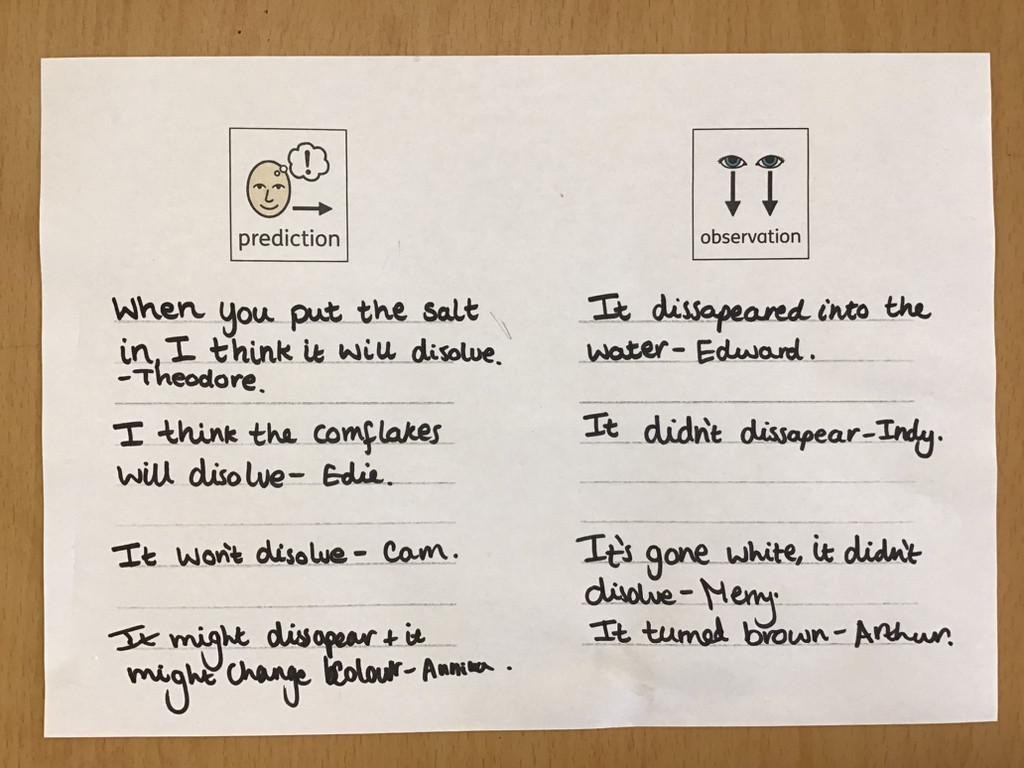 prediction
When you put the salt
in, I think it will disolve.
-Theodore.
I think the cornflakes
will disolve - Edie.
It won't disolve - Cam.
It might dissapear + it
might change colour - Annika.
observation
It dissapeared into the
water - Edward.
It didn't dissapear - Indy.
It's gone white, it didn't
disolve - Merry.
It turned brown - Arthur.